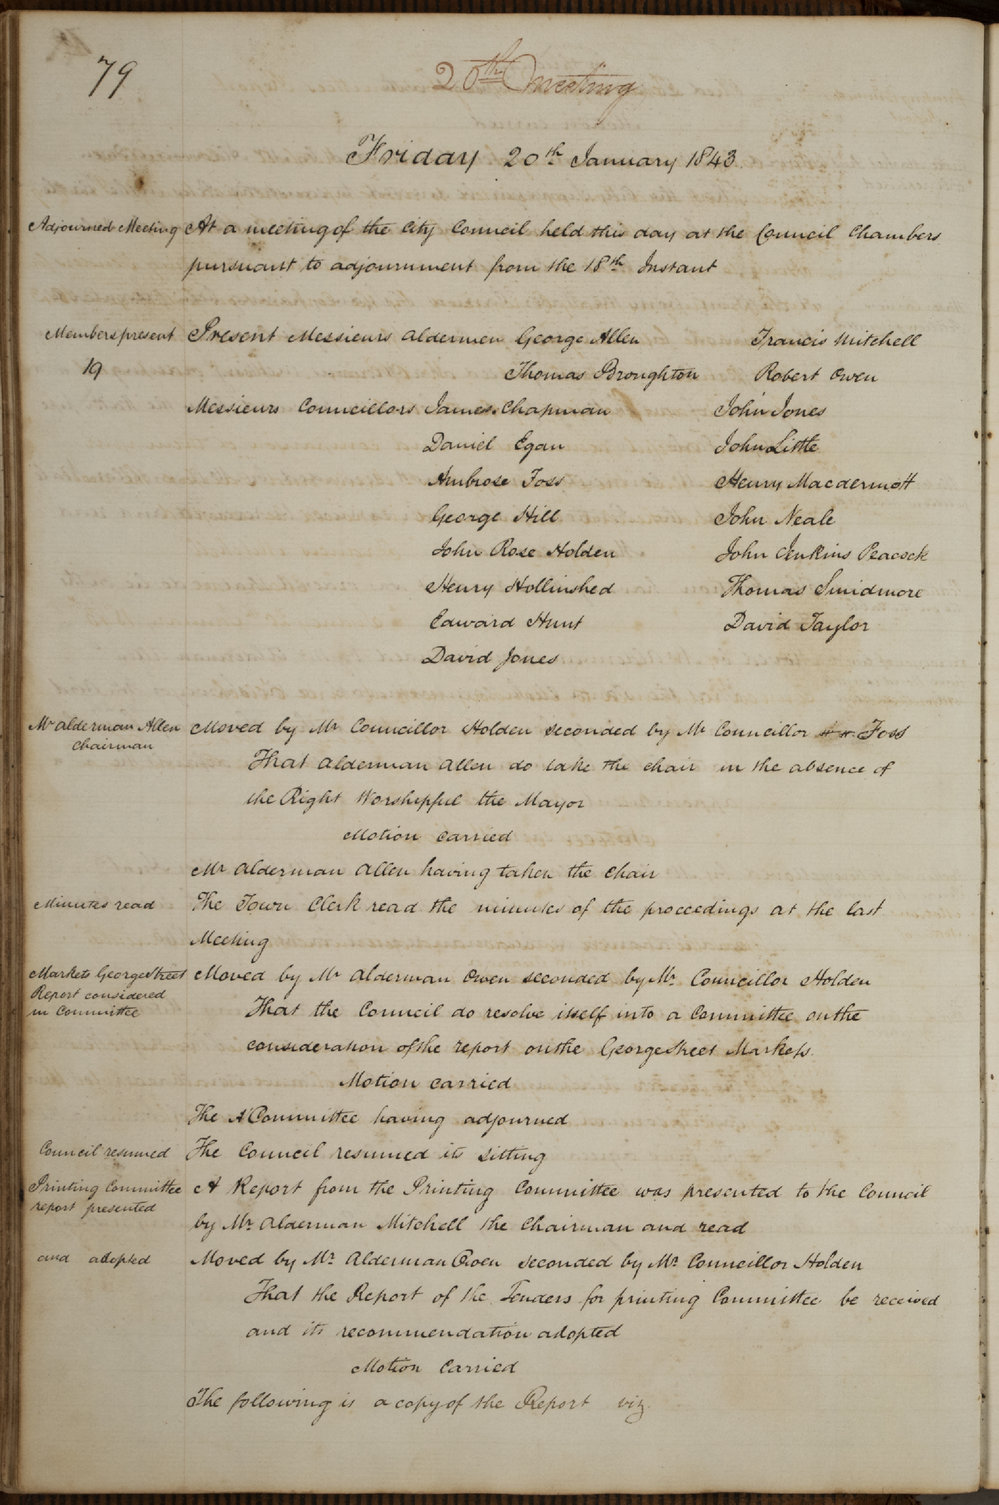 79
20th Meeting
Friday 20th January 1843
Adjourned Meeting At a meeting of the City Council held this day at the Council Chambers
pursuant to adjournment from the 18th Instant
Members present Present Messieurs Aldermen George Allen Francis Mitchell
19 Thomas Broughton Robert Owen
Messieurs Councillors James Chapman John Jones
Daniel Egan John Little
Ambrose Foss Henry Macdermott
George Hill John Neale
John Rose Holden John Jenkins Peacock
Henry Hollinshed Thomas Smidmore
Edward Hunt David Taylor
David Jones
Mr Alderman Allen Moved by Mr Councillor Holden seconded by Mr Councillor Foss
Chairman
That Alderman Allen do take the chair in the absence of
the Right Worshipful the Mayor
Motion carried
Mr Alderman Allen having taken the Chair
Minutes read The Town Clerk read the minutes of the proceedings at the last
Meeting
Markets George Street Moved by Mr Alderman Owen seconded by Mr Councillor Holden
Report considered
in Committee That the Council do resolve itself into a Committee on the
consideration of the report on the George Street Markets.
Motion carried
The Committee having adjourned
Council resumed The Council resumed its sitting
Printing Committee A Report from the Printing Committee was presented to the Council
report presented
by Mr Alderman Mitchell the Chairman and read
and adopted Moved by Mr Alderman Owen seconded by Mr Councillor Holden
That the Report of the Tenders for printing Committee be received
and its recommendation adopted
Motion Carried
The following is a copy of the Report viz